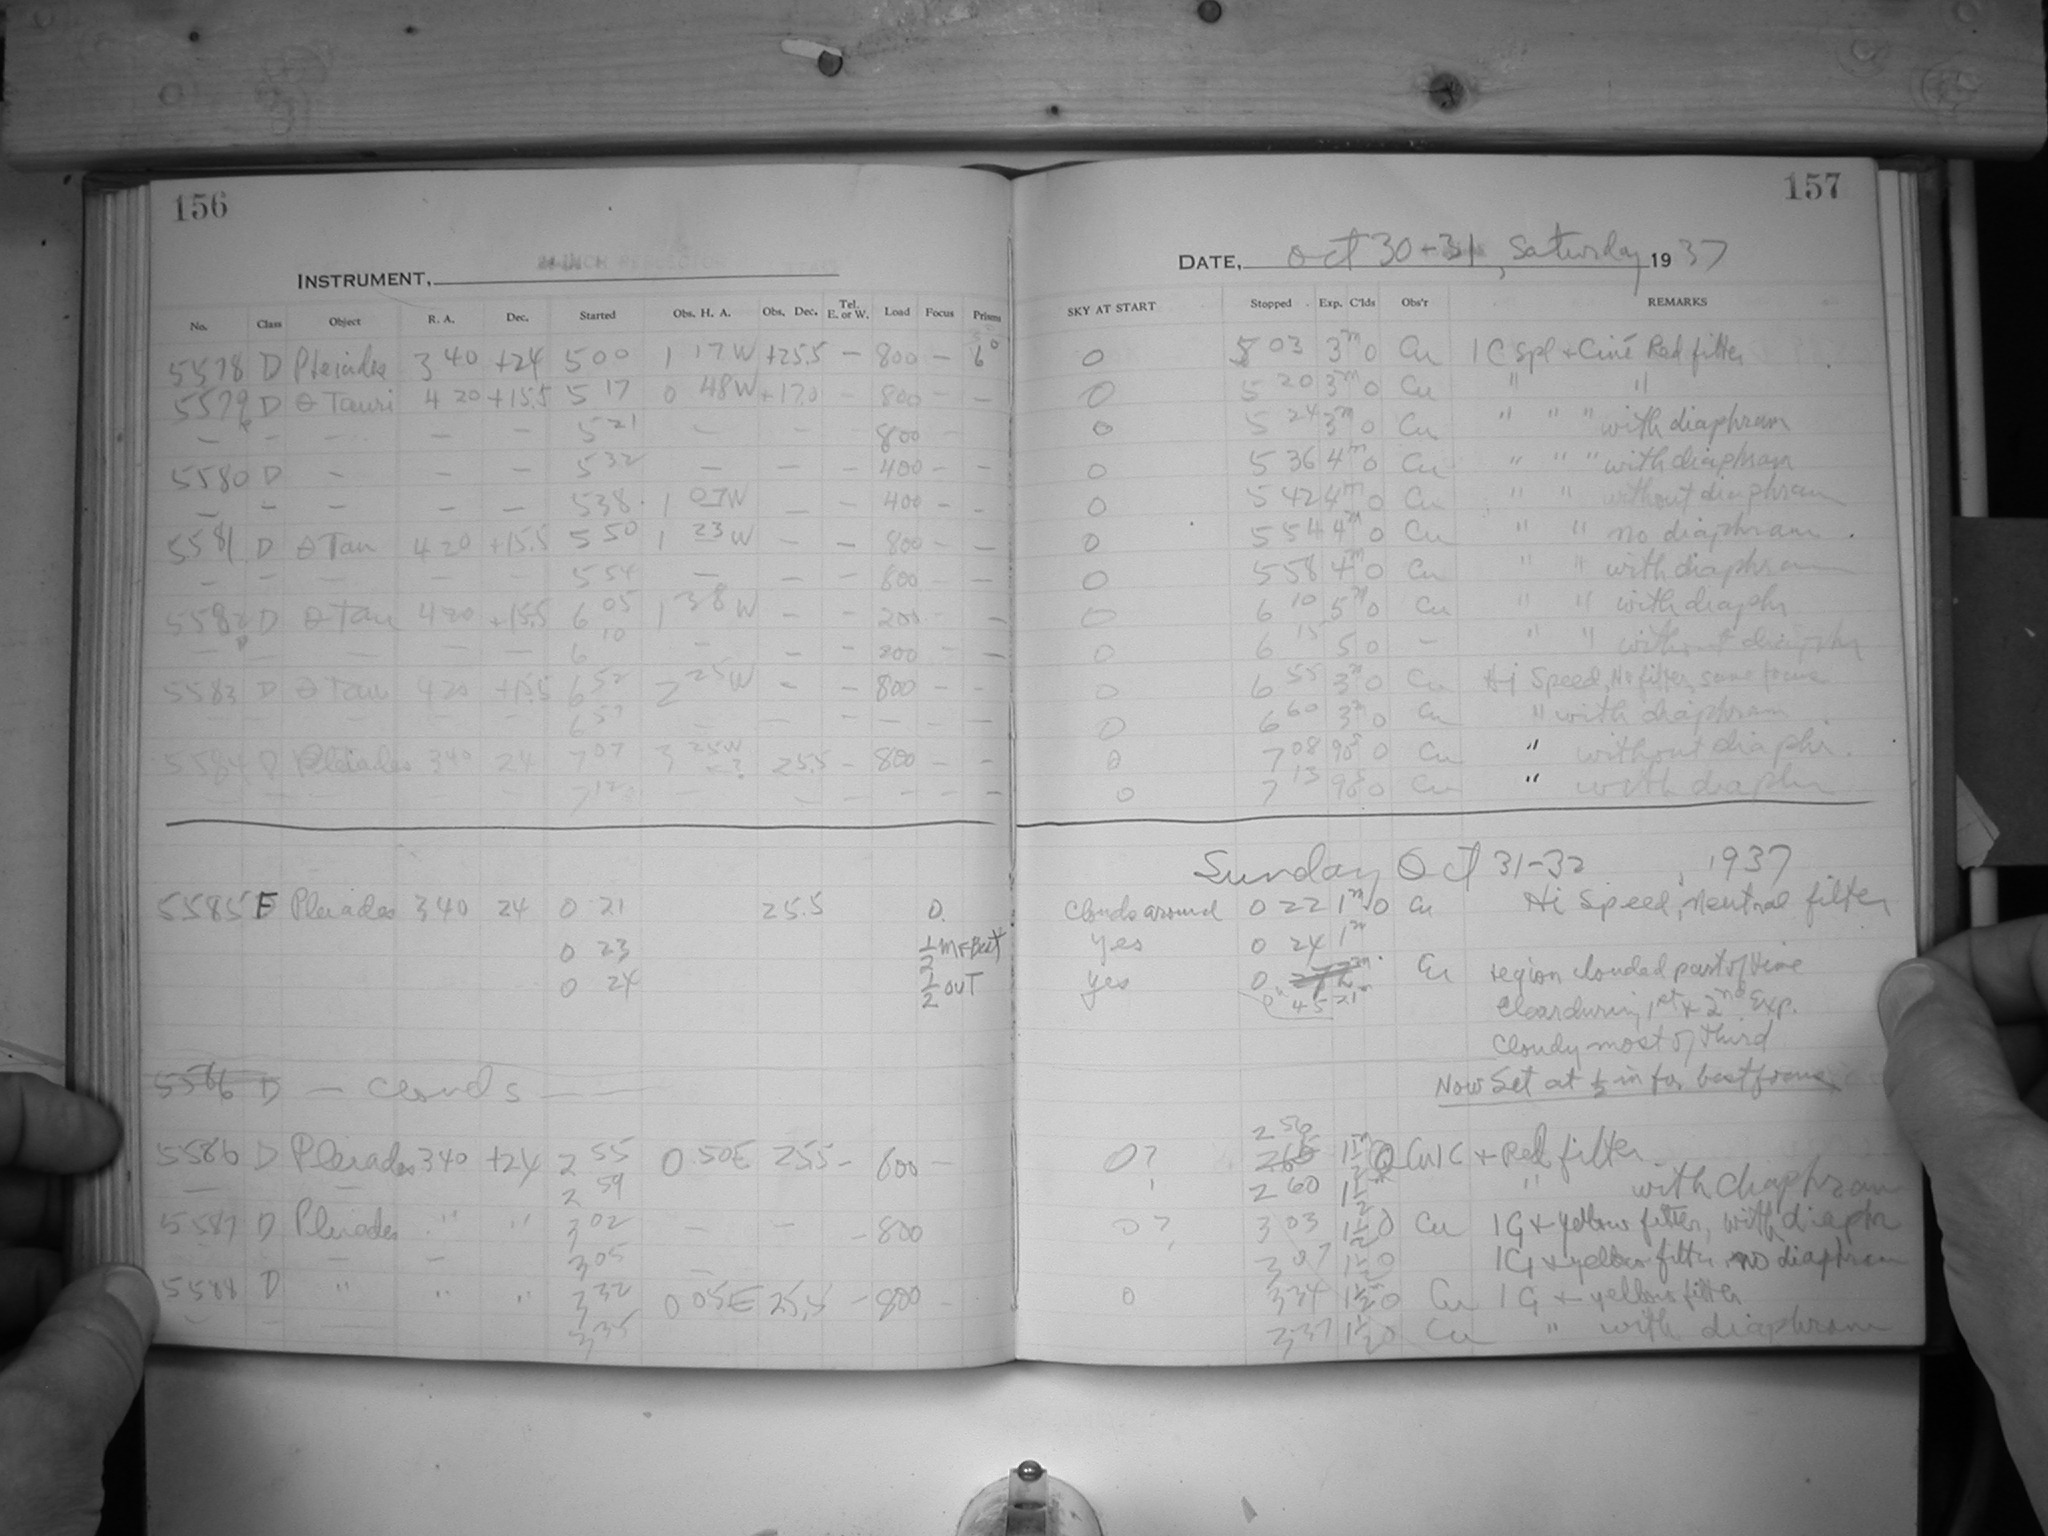 156
157
INSTRUMENT,
DATE, Oct 30-31, Saturday 1937
No. Class Object R. A. Dec. Started Obs. H. A. Obs. Dec. Tel. E. or W. Load Focus Prisms SKY AT START Stopped Exp. C'lds Obs'r REMARKS
5578 D Pleiades 3 40 +24 5 00 1 17 W +25.5 - 800 - 6° 0 5 03 3m 0 Cu 1C Spl + Ciné Red filter
5579 D θ Tauri 4 20 +15.5 5 17 0 48 W +17.0 - 800 - - 0 5 20 3m 0 Cu " "
- - - - - 5 21 - - - 800 - 0 5 24 3m 0 Cu " " " with diaphram
5580 D - - - 5 32 - - - 400 - - 0 5 36 4m 0 Cu " " " with diaphram
- - - - - 5 38 1 07 W - - 400 - - 0 5 42 4m 0 Cu " " without diaphram
5581 D θ Tau 4 20 +15.5 5 50 1 23 W - - 800 - - 0 5 54 4m 0 Cu " " no diaphram
- - - - - 5 54 - - - 800 - - 0 5 58 4m 0 Cu " " with diaphram
5582 D θ Tau 4 20 +15.5 6 05 1 38 W - - 200 - - 0 6 10 5m 0 Cu " " with diaphr
- - - - - 6 10 - - - 200 - - 0 6 15 5 0 - " " without diaphr
5583 D θ Tau 4 20 +15.5 6 52 2 25 W - - 800 - - 0 6 55 3m 0 Cu Hi Speed, No filter, same focus
- - - - 6 57 - - - - - - 0 6 60 3m 0 Cu " with diaphram
5584 D Pleiades 3 40 24 7 07 3 25 W 25.5 - 800 - - 0 7 08 90s 0 Cu " without diaphr.
- - - - 7 12 - - - - - 0 7 13 90s 0 Cu " with diaphr
Sunday Oct 31-32, 1937
5585 F Pleiades 3 40 24 0 21 25.5 0. Clouds around 0 22 1m 0 Cu Hi Speed, neutral filter
0 23 1/2 in + Best yes 0 24 1m
0 24 1/2 out yes 0 Cu region clouded part of time
0 45 21m Clear during 1st & 2nd Exp.
Cloudy most of third
Now Set at 1/2 in for best focus
5586 D - clouds -
5586 D Pleiades 3 40 +24 2 55 0 50E 25.5 - 600 - 0? 2 56 1 1/2m 0 Cu 1C + Red filter
- - 2 59 2 60 1 1/2 " with diaphram
5587 D Pleiades " " 3 02 - - - 800 0? 3 03 1 1/2 0 Cu 1G + yellow filter, with diaphr
- - - 3 05 - 3 07 1 1/2 0 1G + yellow filter no diaphram
5588 D " " " 3 32 0 05E 25.5 - 800 - 0 3 34 1 1/2 0 Cu 1G + yellow filter
3 35 3 37 1 1/2 0 Cu " with diaphram